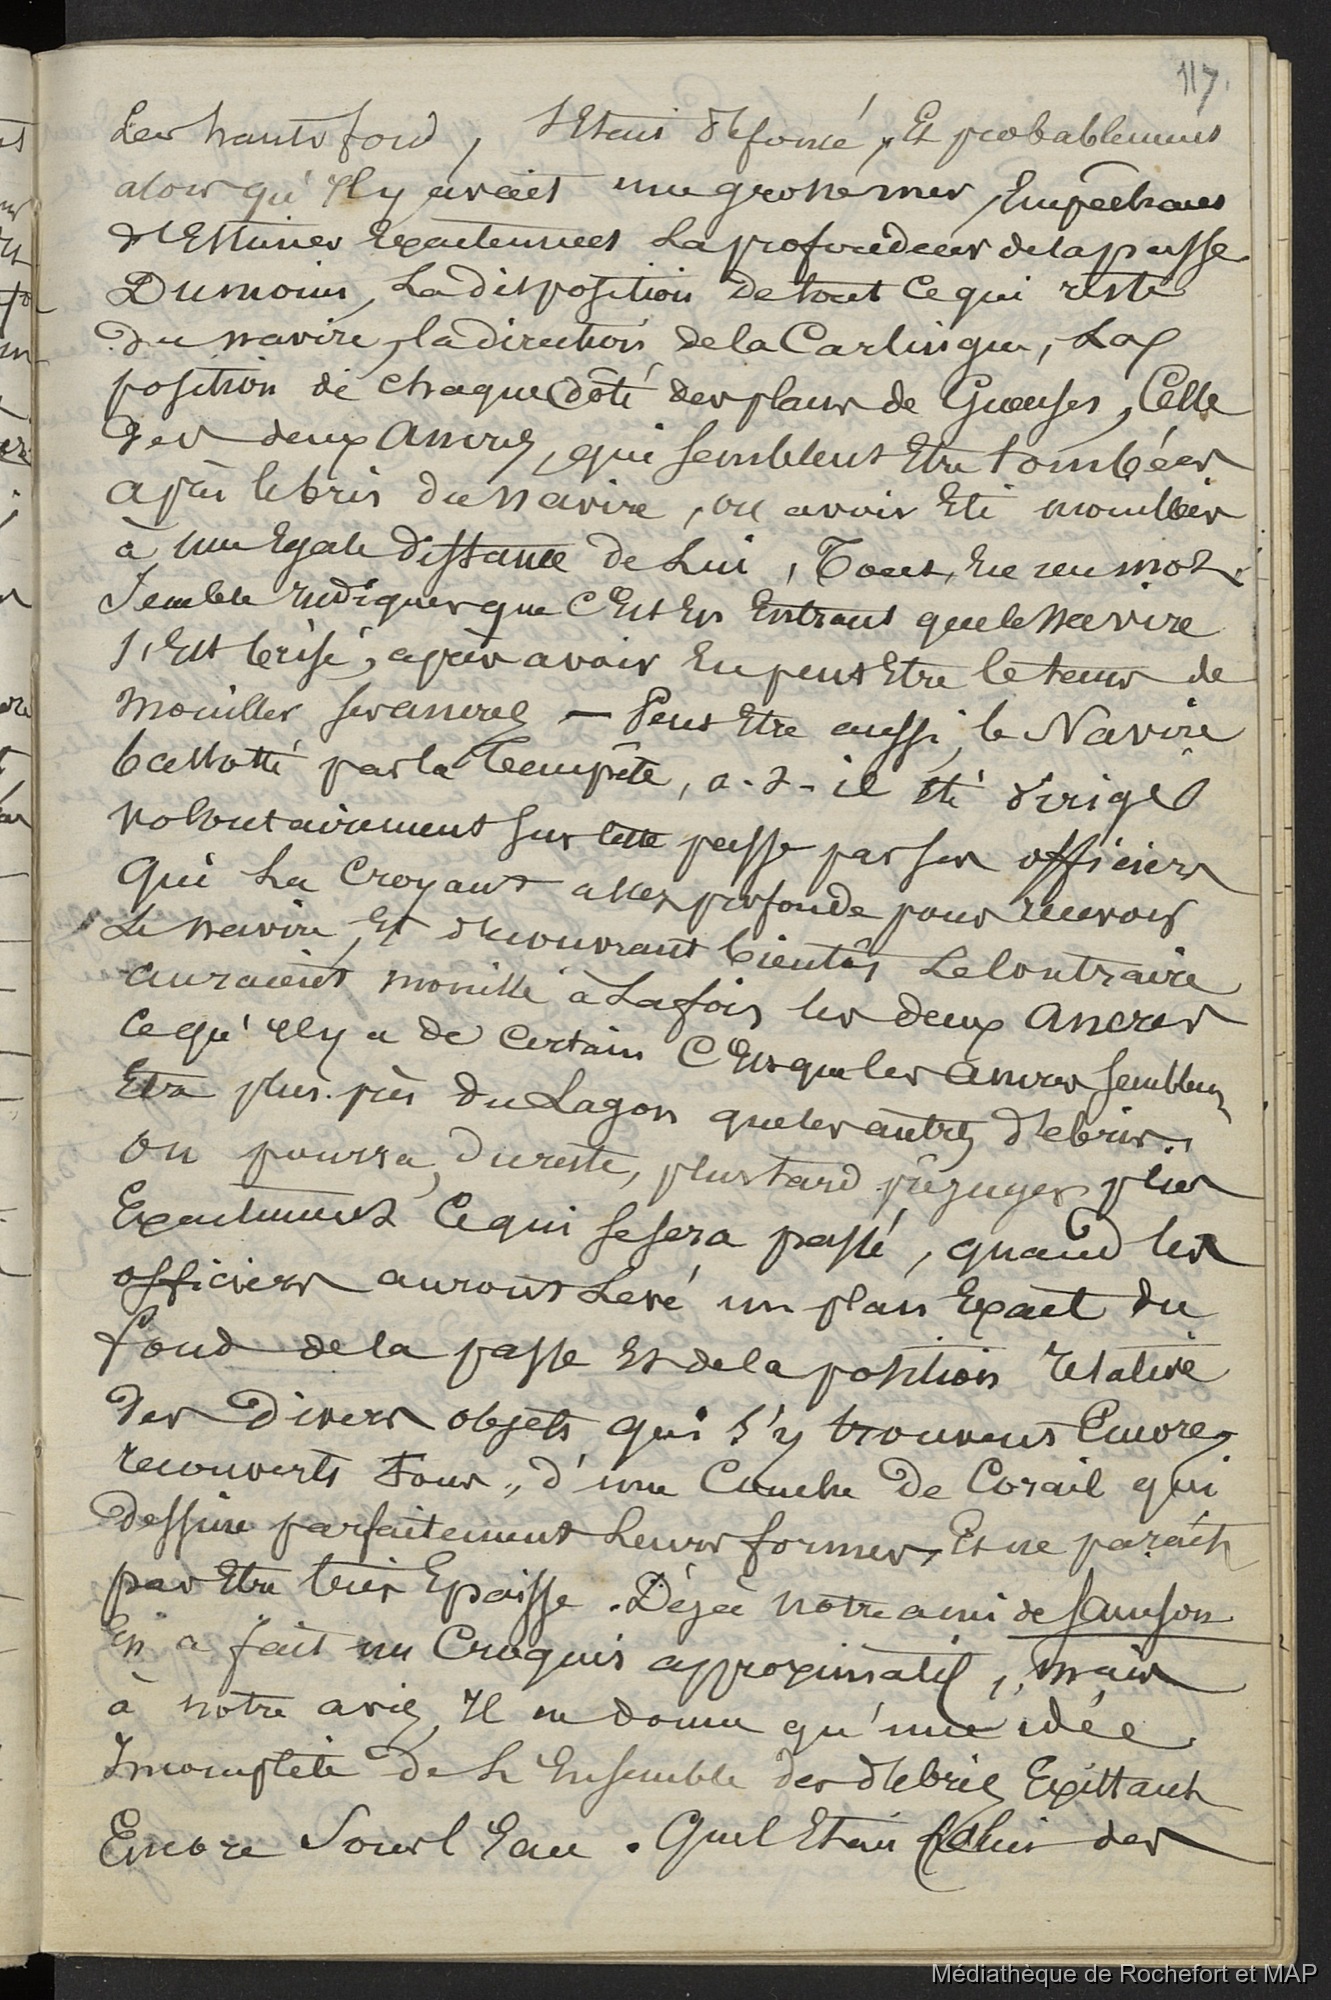 117.
Les hauts fond, s'Etait défoncé, Et probablement
alors qu'Il y avait une grosse mer, Empêchant
d'Estimer Exactement La profondeur de la passe
Du moins, La disposition de tout Ce qui reste
du navire, la direction de la Carlingue, La
position de Chaque Côté des plans de Gueuses, Celle
des deux Ancres, qui semblent Etre tombées
après le bris du navire, ou avoir Eté mouillées
à une Egale distance de Lui, Tout, En un mot
Semble Indiquer que C'Est En Entrant que le Navire
s'Est brisé, après avoir Eu peut Etre le tems de
Mouiller ses ancres — Peut Etre aussi, le Navire
ballotté par la Tempête, a-t-il été dirigé
volontairement sur Cette passe par ses officiers
Qui La Croyant assez profonde pour recevoir
Le navire, Et découvrant bientôt Le Contraire
auraient mouillé à La fois les deux Ancres
Ce qu'Il y a de Certain C'Est que les Ancres semblent
Etre plus près du Lagon que les autres débris.
On pourra, du reste, plus tard préjuger plus
Exactement Ce qui se sera passé, quand les
officiers auront Levé un plan Exact du
fond de la passe Et de la position relative
des divers objets qui s'y trouvent Encore,
recouverts Tous, d'une Couche de Corail qui
dessine parfaitement Leurs formes, Et ne paraît
pas Etre très Epaisse. Déjà notre ami de Samson
En a fait un Croquis approximatif, mais
à notre avis, Il ne donne qu'une idée
Incomplète de L'Ensemble des débris Existant
Encore Sous l'Eau. Quel Etait Celui des
Médiathèque de Rochefort et MAP